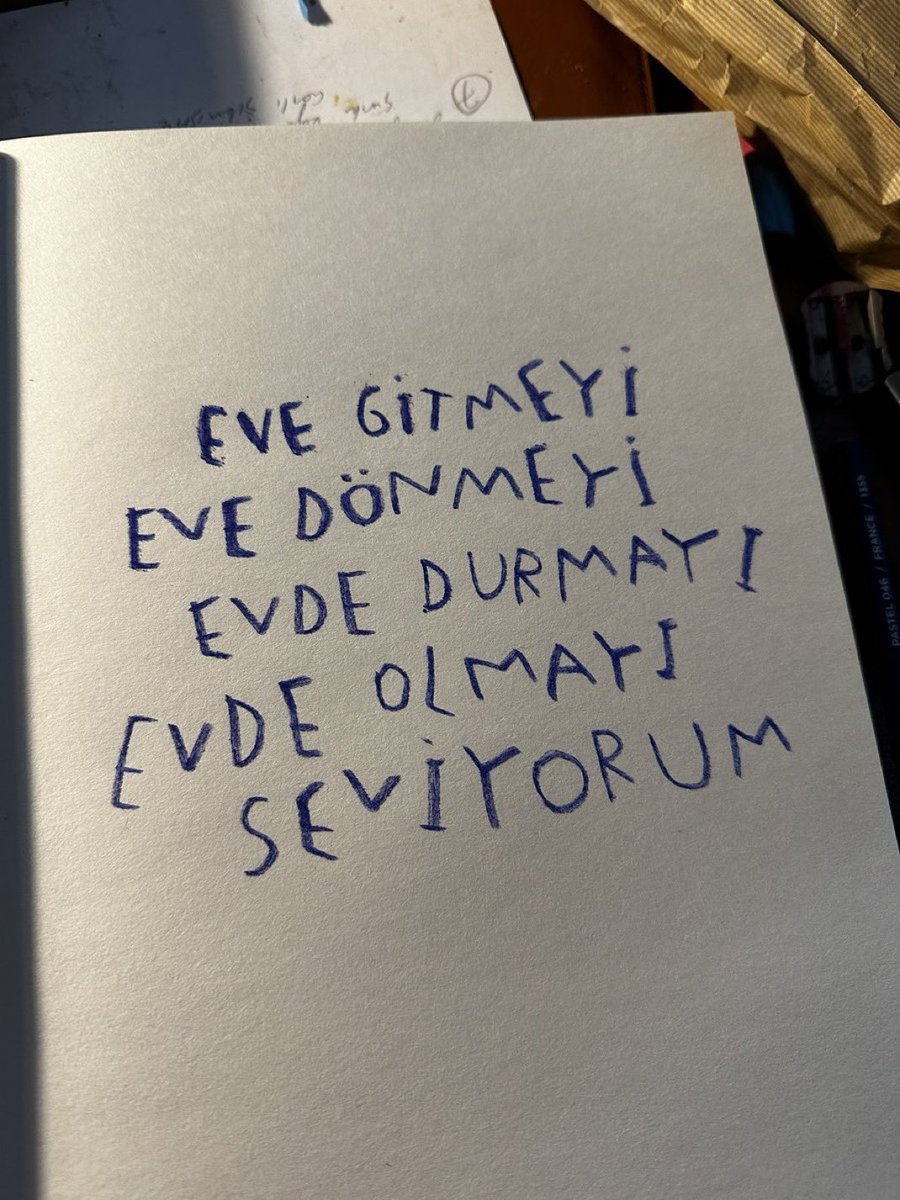 EVE GİTMEYİ
EVE DÖNMEYİ
EVDE DURMAYI
EVDE OLMAYI
SEVİYORUM
PASTEL 046 / FRANCE / 1355